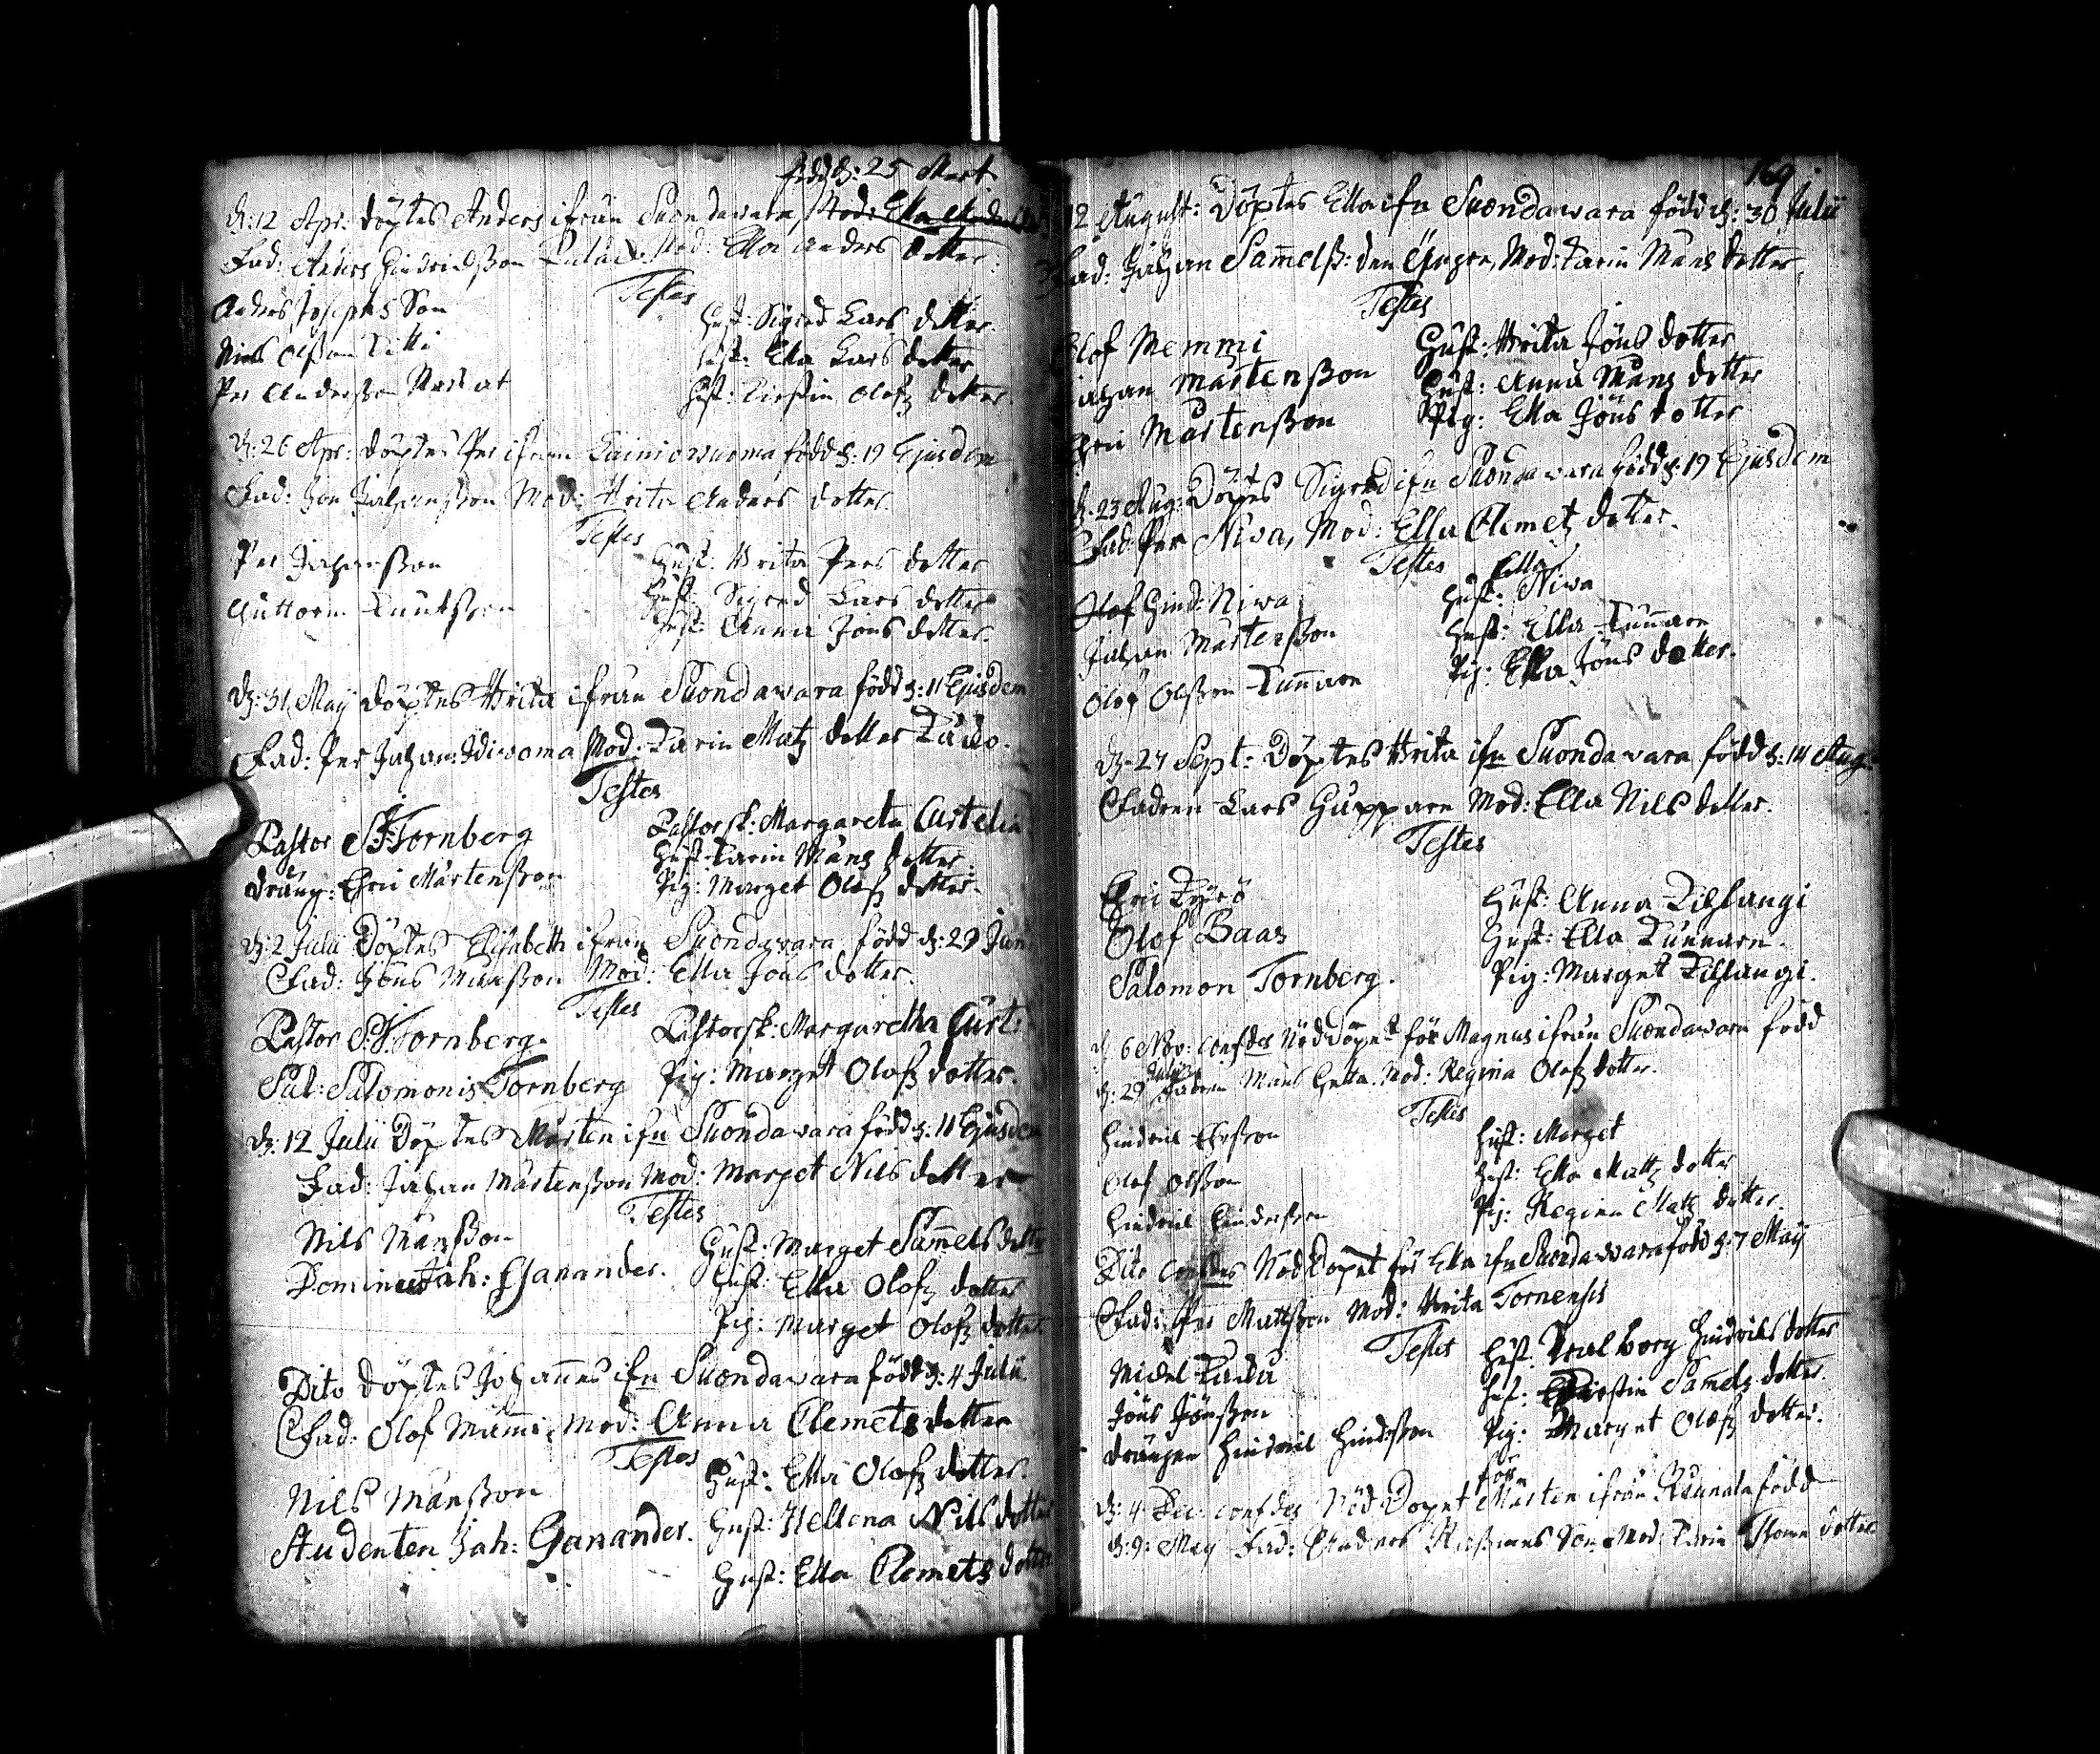 född d: 25 Mart
d: 12 Apr: döptes Anders ifrån Suondawara, Mod: Ella
Fad: Anders Hindricksson Mod: Ella Anders dotter.
Testes
Anders Josephs Son Hust: Sigred Lars dotter.
Nils Olsson Kitti Hust: Ella Lars dotter
Per Andersson Hust: Kirstin Olofz dotter.
d: 26 Apr: döptes Per ifrån Lainiowuoma född d: 19 Ejusdem
Fad: Jon Johansson Mod: Brita Anders dotter.
Testes
Per Johansson Hust: Brita Pers dotter
Guttorm Knutsson Hust: Sigred Lars dotter
Hust: Anna Jons dotter.
d: 31 Maij döptes Brita ifrån Suondawara född d: 11 Ejusdem
Fad: Per Johan: Idiwoma Mod: Karin Matz dotter
Testes
Pastor S. Tornberg Pastorsk: Margareta Curtelia
dräng: Eric Mårtensson Hust: Karin Måns dotter
Pig: Marget Olofz dotter.
d: 2 Julii Döptes Elisabeth ifrån Suondawara född d: 29 Jun
Fad: Jöns Månsson Mod: Ella Jöns dotter.
Testes
Pastor S. Tornberg. Pastorsk: Margaretha Curt:
Sal: Salomonis Tornberg Pig: Marget Olofz dotter.
d: 12 Julii Döptes Mårten ifn Suondawara född d: 11 Ejusdem
Fad: Johan Mårtensson Mod: Marget Nils dotter
Testes
Nils Månsson Hust: Marget Samels dotter
Dominus Joh: Ganander. Hust: Ella Olofz dotter
Pig: Marget Olofz dotter
Dito döptes Johannes ifn Suondawara född d: 4 Julii
Fad: Olof Mämmi, Mod: Anna Clemets dotter
Testes
Nils Månsson Hust: Ella Olofz dotter.
Studenten Joh: Ganander. Hust: Hellena Nils dotter
Hust: Ella Clemets dotter
169
12 August: Döptes Ella ifn Suondawara född d: 30 Julii
Fad: Johan Samelss: den Mod: Karin Måns dotter.
Testes
Olof Memmi Hust: Brita Jöns dotter
Johan Mårtensson Hust: Anna Måns dotter
Eric Mårtensson Pig: Ella Jöns dotter
d. 23 Aug: Döptes Sigred ifn Suondawara född d: 19 Ejusdem
Fad: Per Niwa, Mod: Ella Clemetz dotter.
Testes
Olof Hind: Niwa Hust: Ella Niwa
Johan Mårtensson Hust: Ella Kunnare
Olof Olsson Kunnare Pig: Ella Jöns dotter.
d: 27 Sept: Döptes Brita ifn Suondawara född d: 14 Aug:
Fadren Lars Huppare Mod: Ella Nils dotter.
Testes
Eric Kyrö Hust: Anna Kihlangi
Olof Baas Hust: Ella Kunnare.
Salomon Tornberg. Pig: Marget Kihlangi.
d. 6 Nov: confdes Nöddopet för Magnus ifrån Suondawara född
d: 29 Julii Fadren Måns Hetta Mod: Regina Olofz dotter.
Testes
Hindric Ersson Hust: Marget
Olof Olsson Hust: Ella Mattz dotter
Hindric Hinderson Pig: Regina Matz dotter.
Dito confdes Nöddopet för Ella ifn Suondawara född d: 7 Maij
Fad: Per Mattsson Mod: Brita Tornensis
Testes
Michel Hust: Walborg Hindrichs dotter
Jöns Jönsson Hust: Kirstin Samelz dotter.
drängen Hindric Hindsson Pig: Marget Olofz dotter.
d: 4 Dec: confdes Nöddopet för Mårten ifrån Rounala född
d: 9: Maij Fad: Anders Rasmus Son Mod: Karin Thomæ dotter